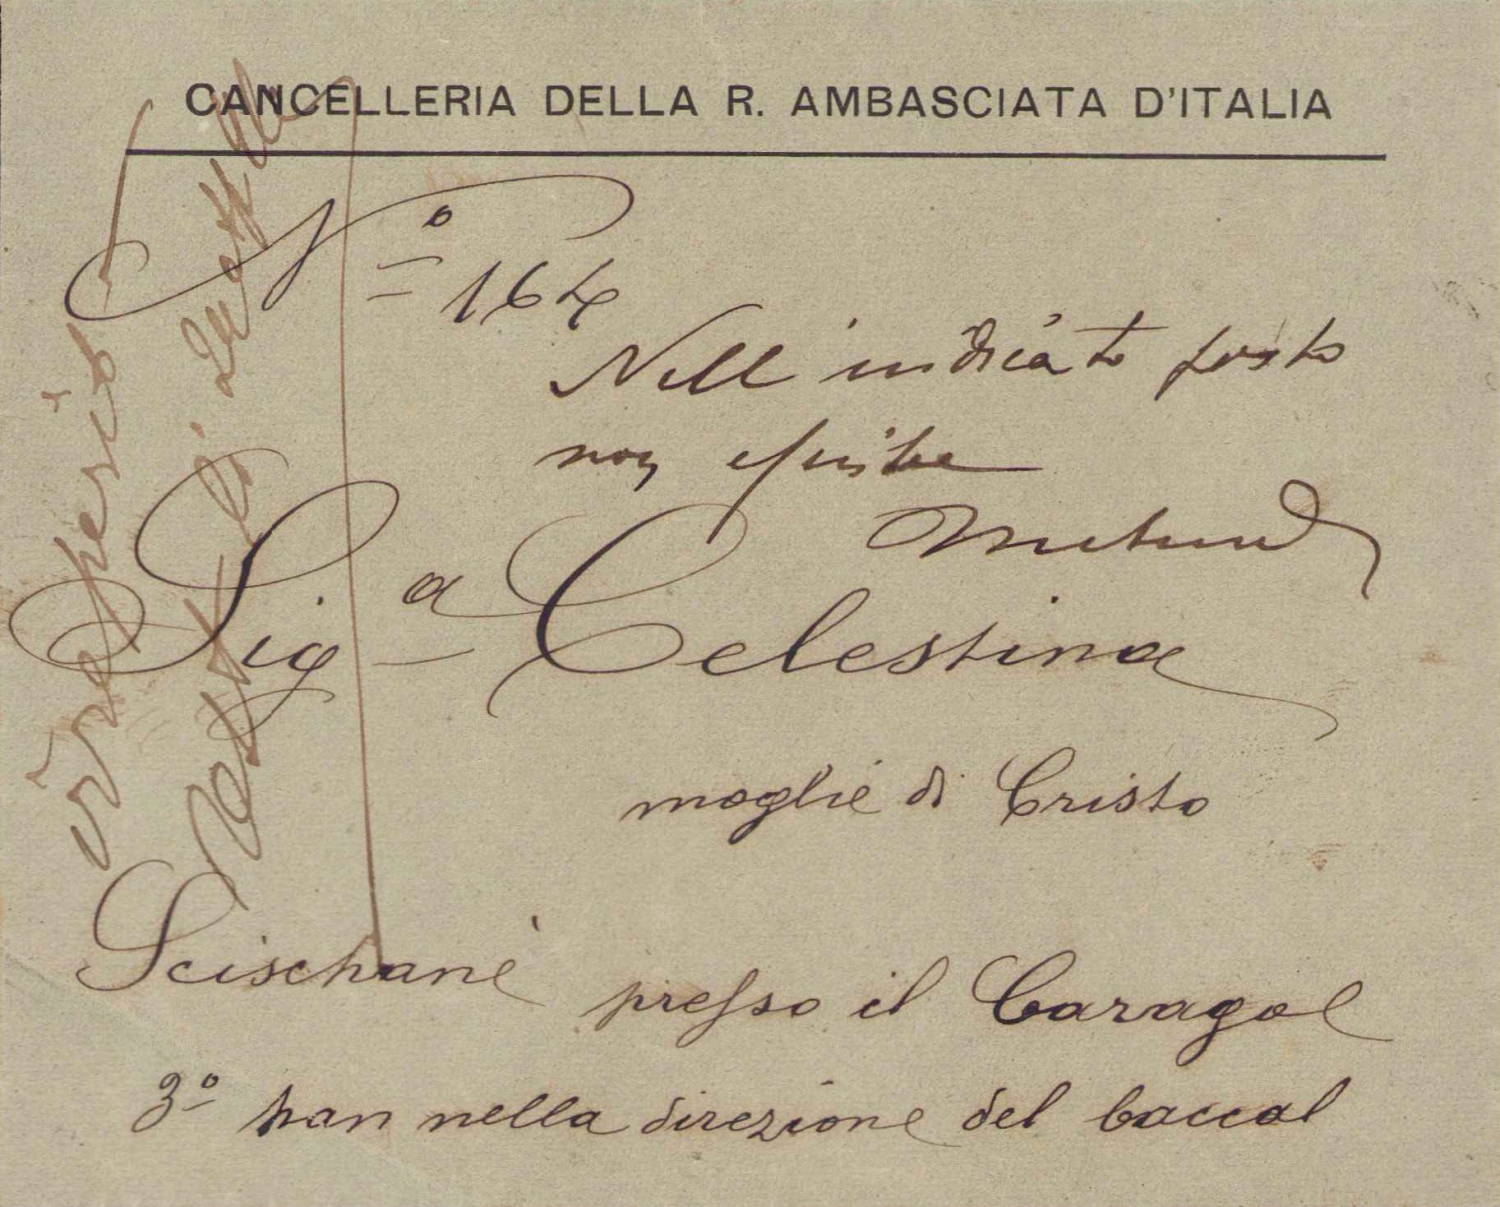 CANCELLERIA DELLA R. AMBASCIATA D'ITALIA
Nº 164
Nell indicato posto
non esiste
Sigª Celestina
moglie di Cristo
Scischanè presso il Caragol
3º han nella direzione del baccal